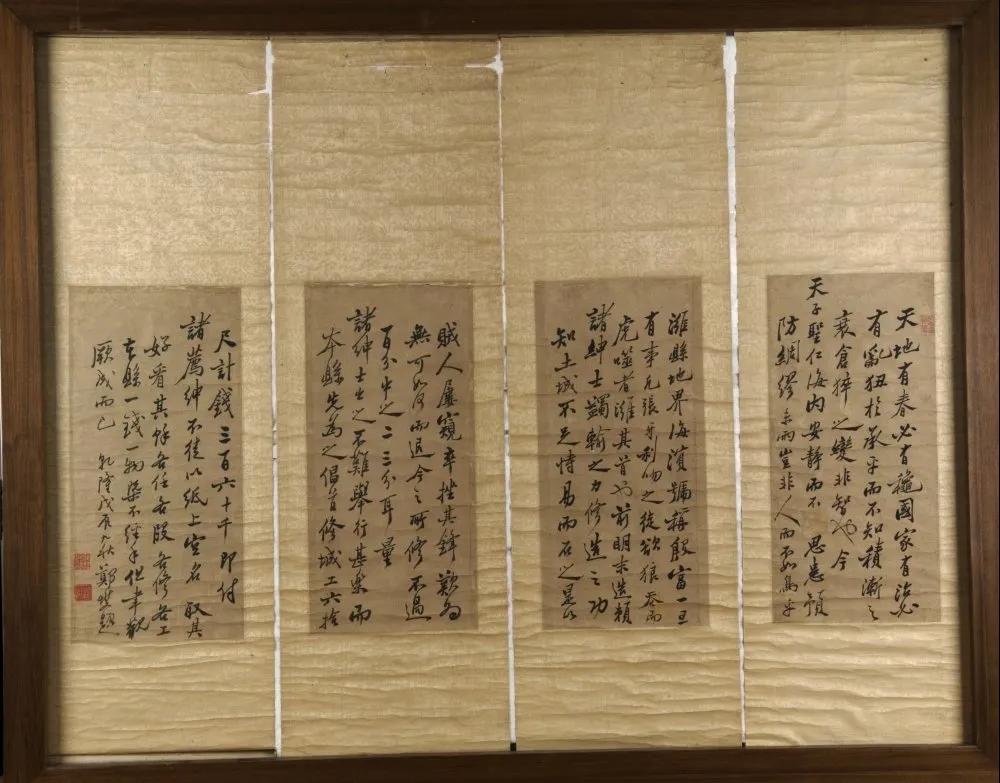 天地有春必有龝國家有治必
有亂狃於承平而不知積漸之
衰倉猝之變非智也今
天子聖仁海内安静而不思患預
防綢繆未雨豈非人而不如鳥乎
濰縣地界海濱號稱殷富一旦
有事凡張牙利吻之徒欲狼吞而
虎噬者濰其首也前明末造賴
諸紳士蠲輸之力修造之功
知土城不足恃易而石之是以
賊人屢窺卒挫其鋒歎為
無可如何而退今之所修不過
百分中之二三分耳量
諸紳士之不難舉行甚樂而
本縣先為之倡首修城工六拾
尺計錢三百六十千即付
諸薦紳不徒以紙上空名取其
好看其餘各任各段各修各工
本縣一錢一物槩不經手但聿觀
厥成而已 乾隆戊辰九秋鄭燮題